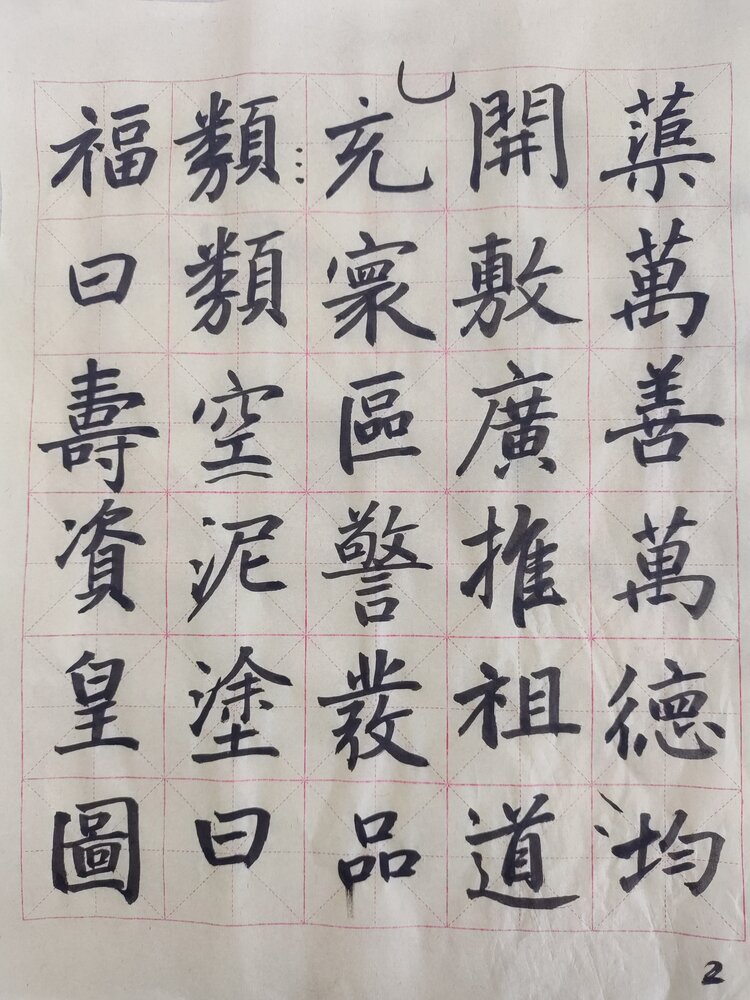 蕖萬善萬德均
開敷廣推祖道
充寰區警發品
類類空泥塗曰
福曰壽資皇圖
2